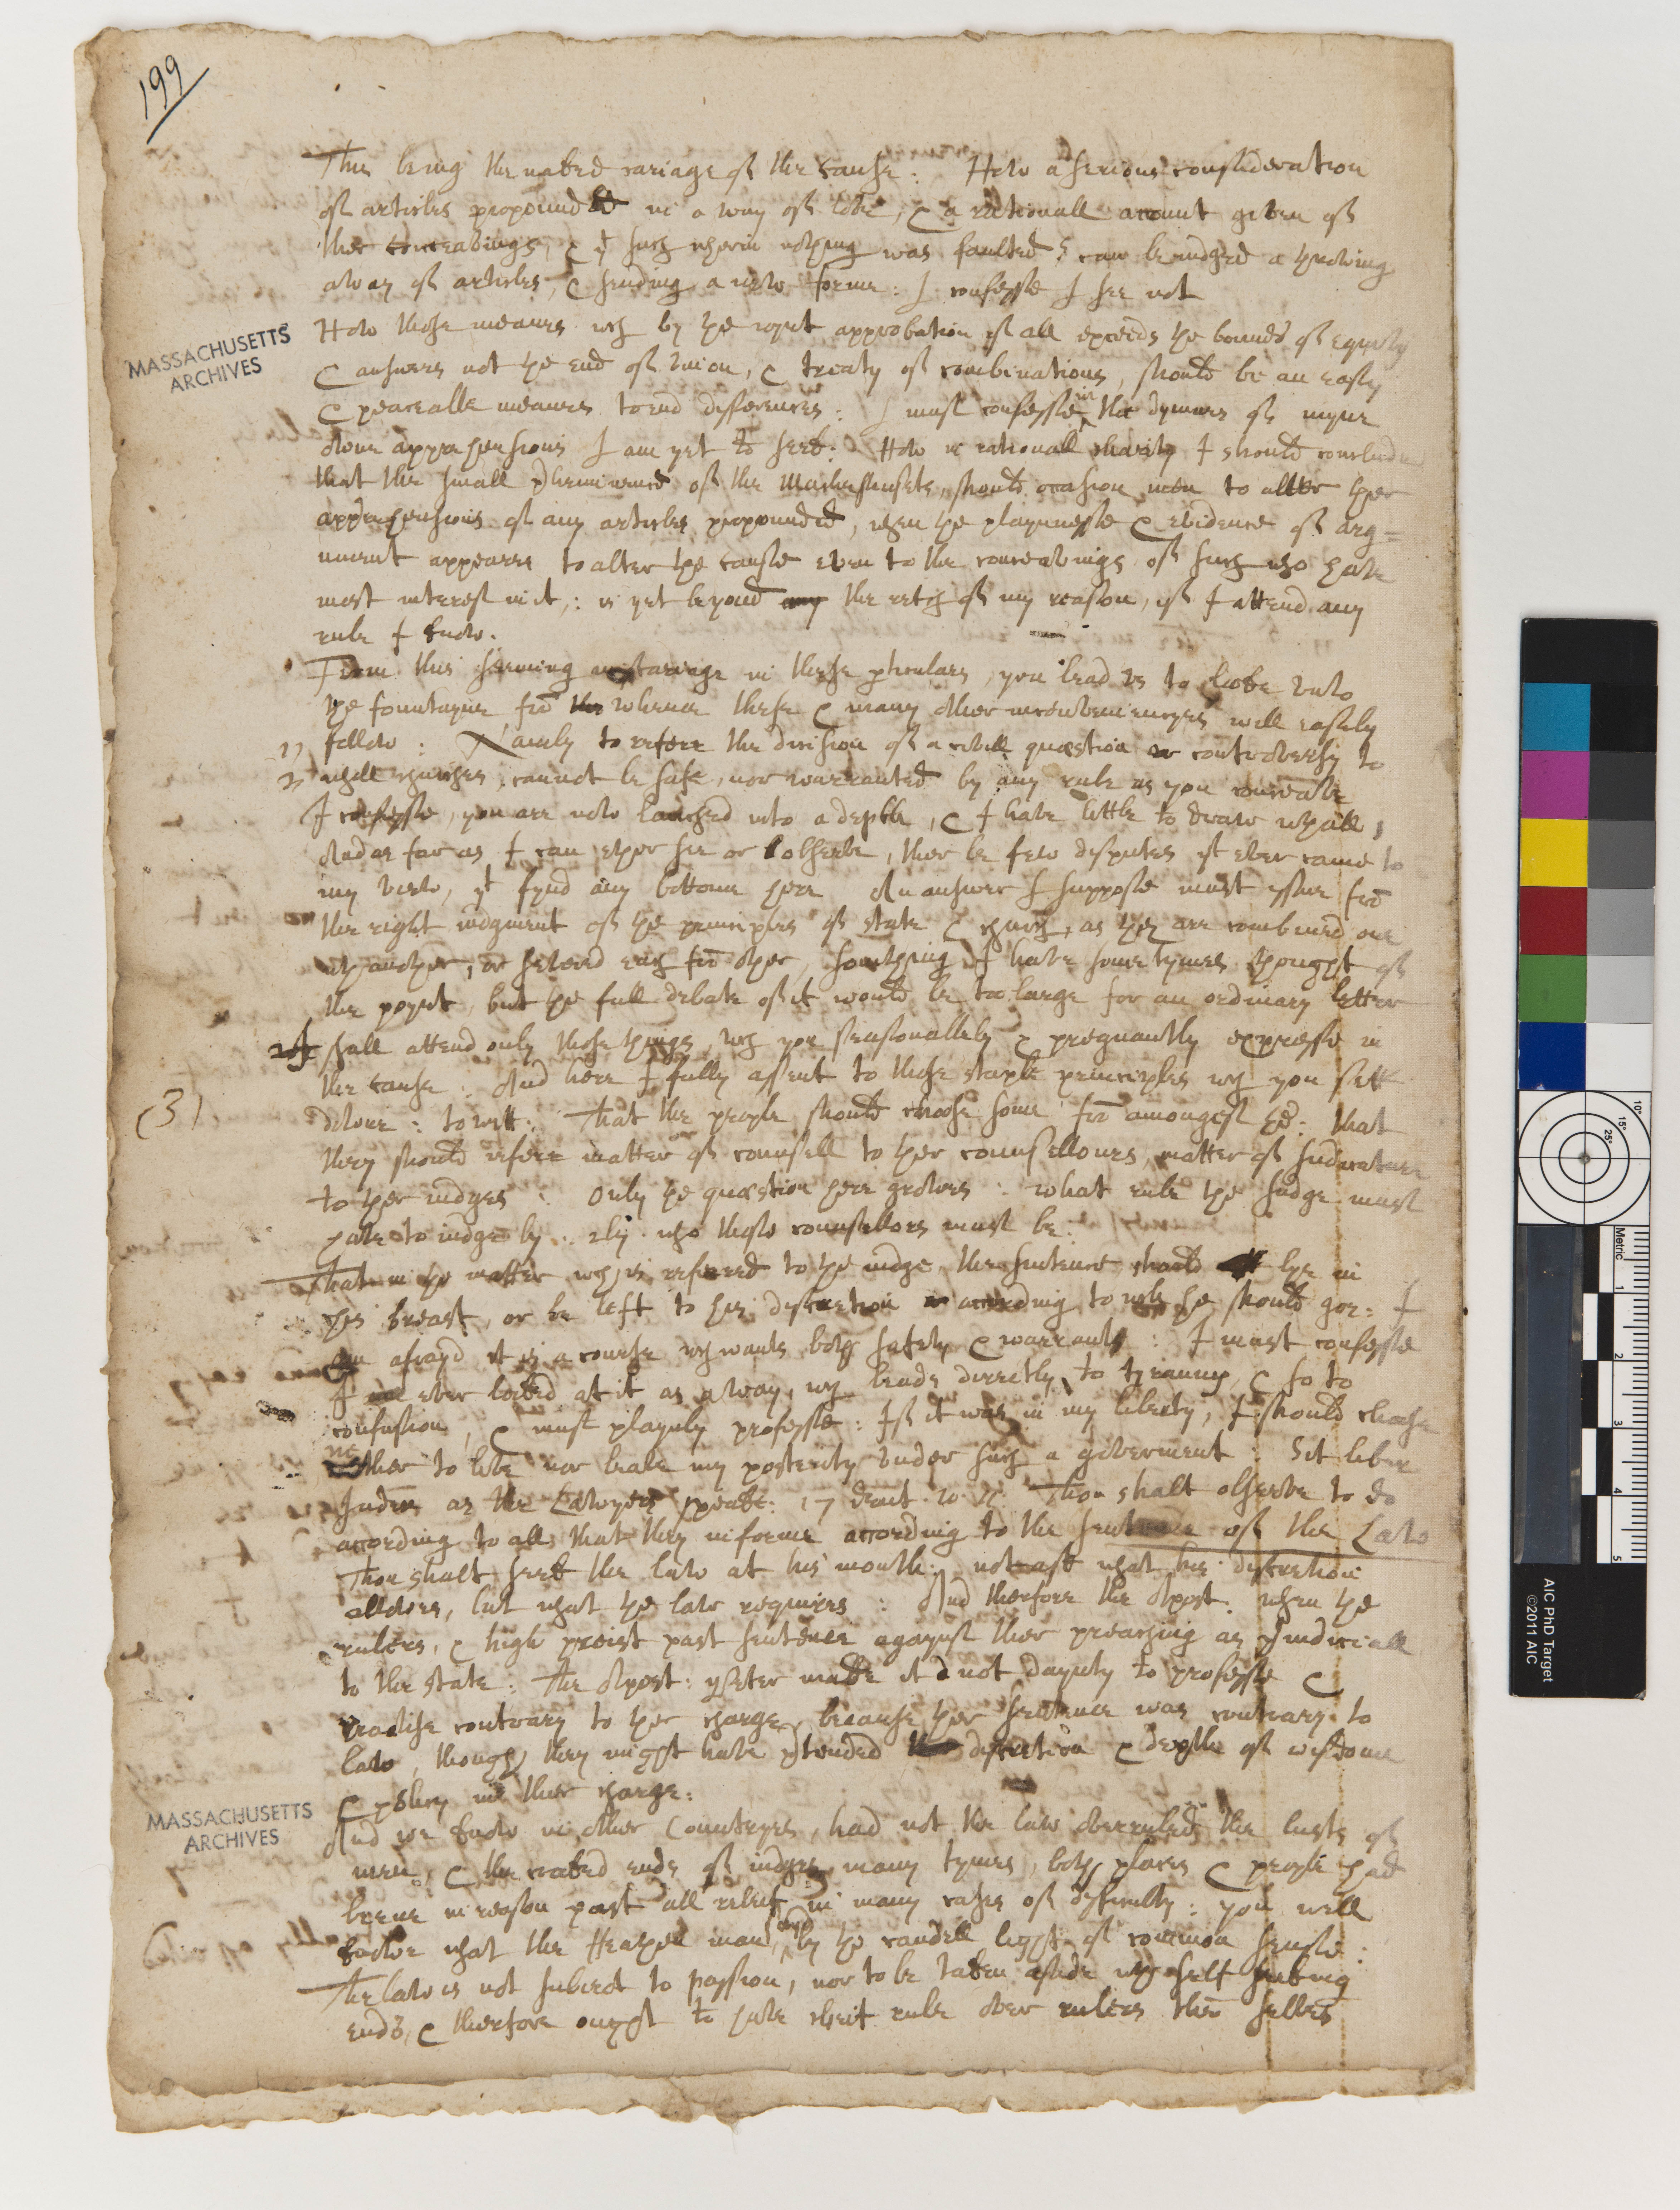 199
This being the naked cariage of the cause : How a serious consideration
of articles propounded in a way of love, & a rationall account given of
ther conceavings, & yt such wherin nothing was faulted, can be iudged a throwing
away of articles, & sending a new forme : I confesse I see not
How those meanes wch by the ioynt approbation of all exceeds the bounds of equity
MASSACHUSETTS
ARCHIVES
& answers not the end of union, & treaty of combinations, should be an easy
& peaceable meanes to end differences : I must confesse in the dymnes of myne
owne apprehensions I am yet to seek : How in rationall charity I should conclude
that the small of the Machesusets, should occasion men to alter ther
apprehensions of any articles propounded, when the playnnesse & evidence of arg=
ument appeares to alter the cause even to the conceavings of such who have
most interest in it, : is yet beyond any the retch of my reason, if I attend any
rule I know.
From this seeming miscariage in these pticulars, you lead us to looke unto
the fountayne fro the whence these & many other inconveniencyes will easily
1) follow : Namly to referr the decision of a civill question or controversy to
2) whole churches, cannot be safe, nor warranted by any rule as you conceave
I confesse, you are now lanched into a depth, & I have little to draw withall,
And as far as I can ether see or observe, ther be few disputes yt ever came to
my view, yt fynd any bottome here An answer I suppose must issue fro
the right iudgment of the principles of state & church, as they are combined one
wth another, or severed each fro other, somthing I have sometymes thought of
the poynt, but the full debate of it would be too large for an ordinary letter
I shall attend only those things, wch you seasonablely & pregnantly expresse in
the cause : And here I fully assent to those staple principles wch you sett
(3)
downe : to witt : That the people should choose some fro amongest the : that
they should referr matter of counsell to ther counsellours, matter of Iudicature
to ther iudges : only the question here growes : what rule the Iudge must
have to iudge by : 2ly who those counsellors must be :
That in the matter wch is referred to the iudge, the sentence should lye in
his breast, or be left to his discretion according to wch he should goe : I
am afrayd it is a course wch wants both safety & warrant : I must confesse
I ever looked at it as a way, wch leads directly to tyranny, & so to
confusion, & must playnly professe : If it was in my liberty, I should choose
nether to live nor leave my posterity under such a goverment : Sit liber
Iudex as the Lawyers speake : 17 deut. 10. 11. Thou shalt observe to do
according to all that they informe according to the sentence of the Law
Thou shalt seek the law at his mouth : not ask what his discretion
allowes, but what the law requires : And therfore the Apost. when the
rulers, & high preist past sentence agaynst ther preaching as p̱iudiciall
to the state : The Apost : Peter made it not daynty to professe &
practise contrary to ther charge, because ther sentence was contrary to
law, though they might have ptended discretion & depth of wisdome
& policy in ther charge :
MASSACHUSETTS
ARCHIVES
And we know in other Countryes, had not the law overruled the lusts of
men, & the crooked ends of iudges many tymes, both places & people had
beene in reason past all releif in many cases of difficulty : you well
know what the Heathen man sayd by the candell light of common sense :
The law is not subiect to passion, nor to be taken aside wth self seeking
ends, & therfore ought to have cheif rule over rulers them selves